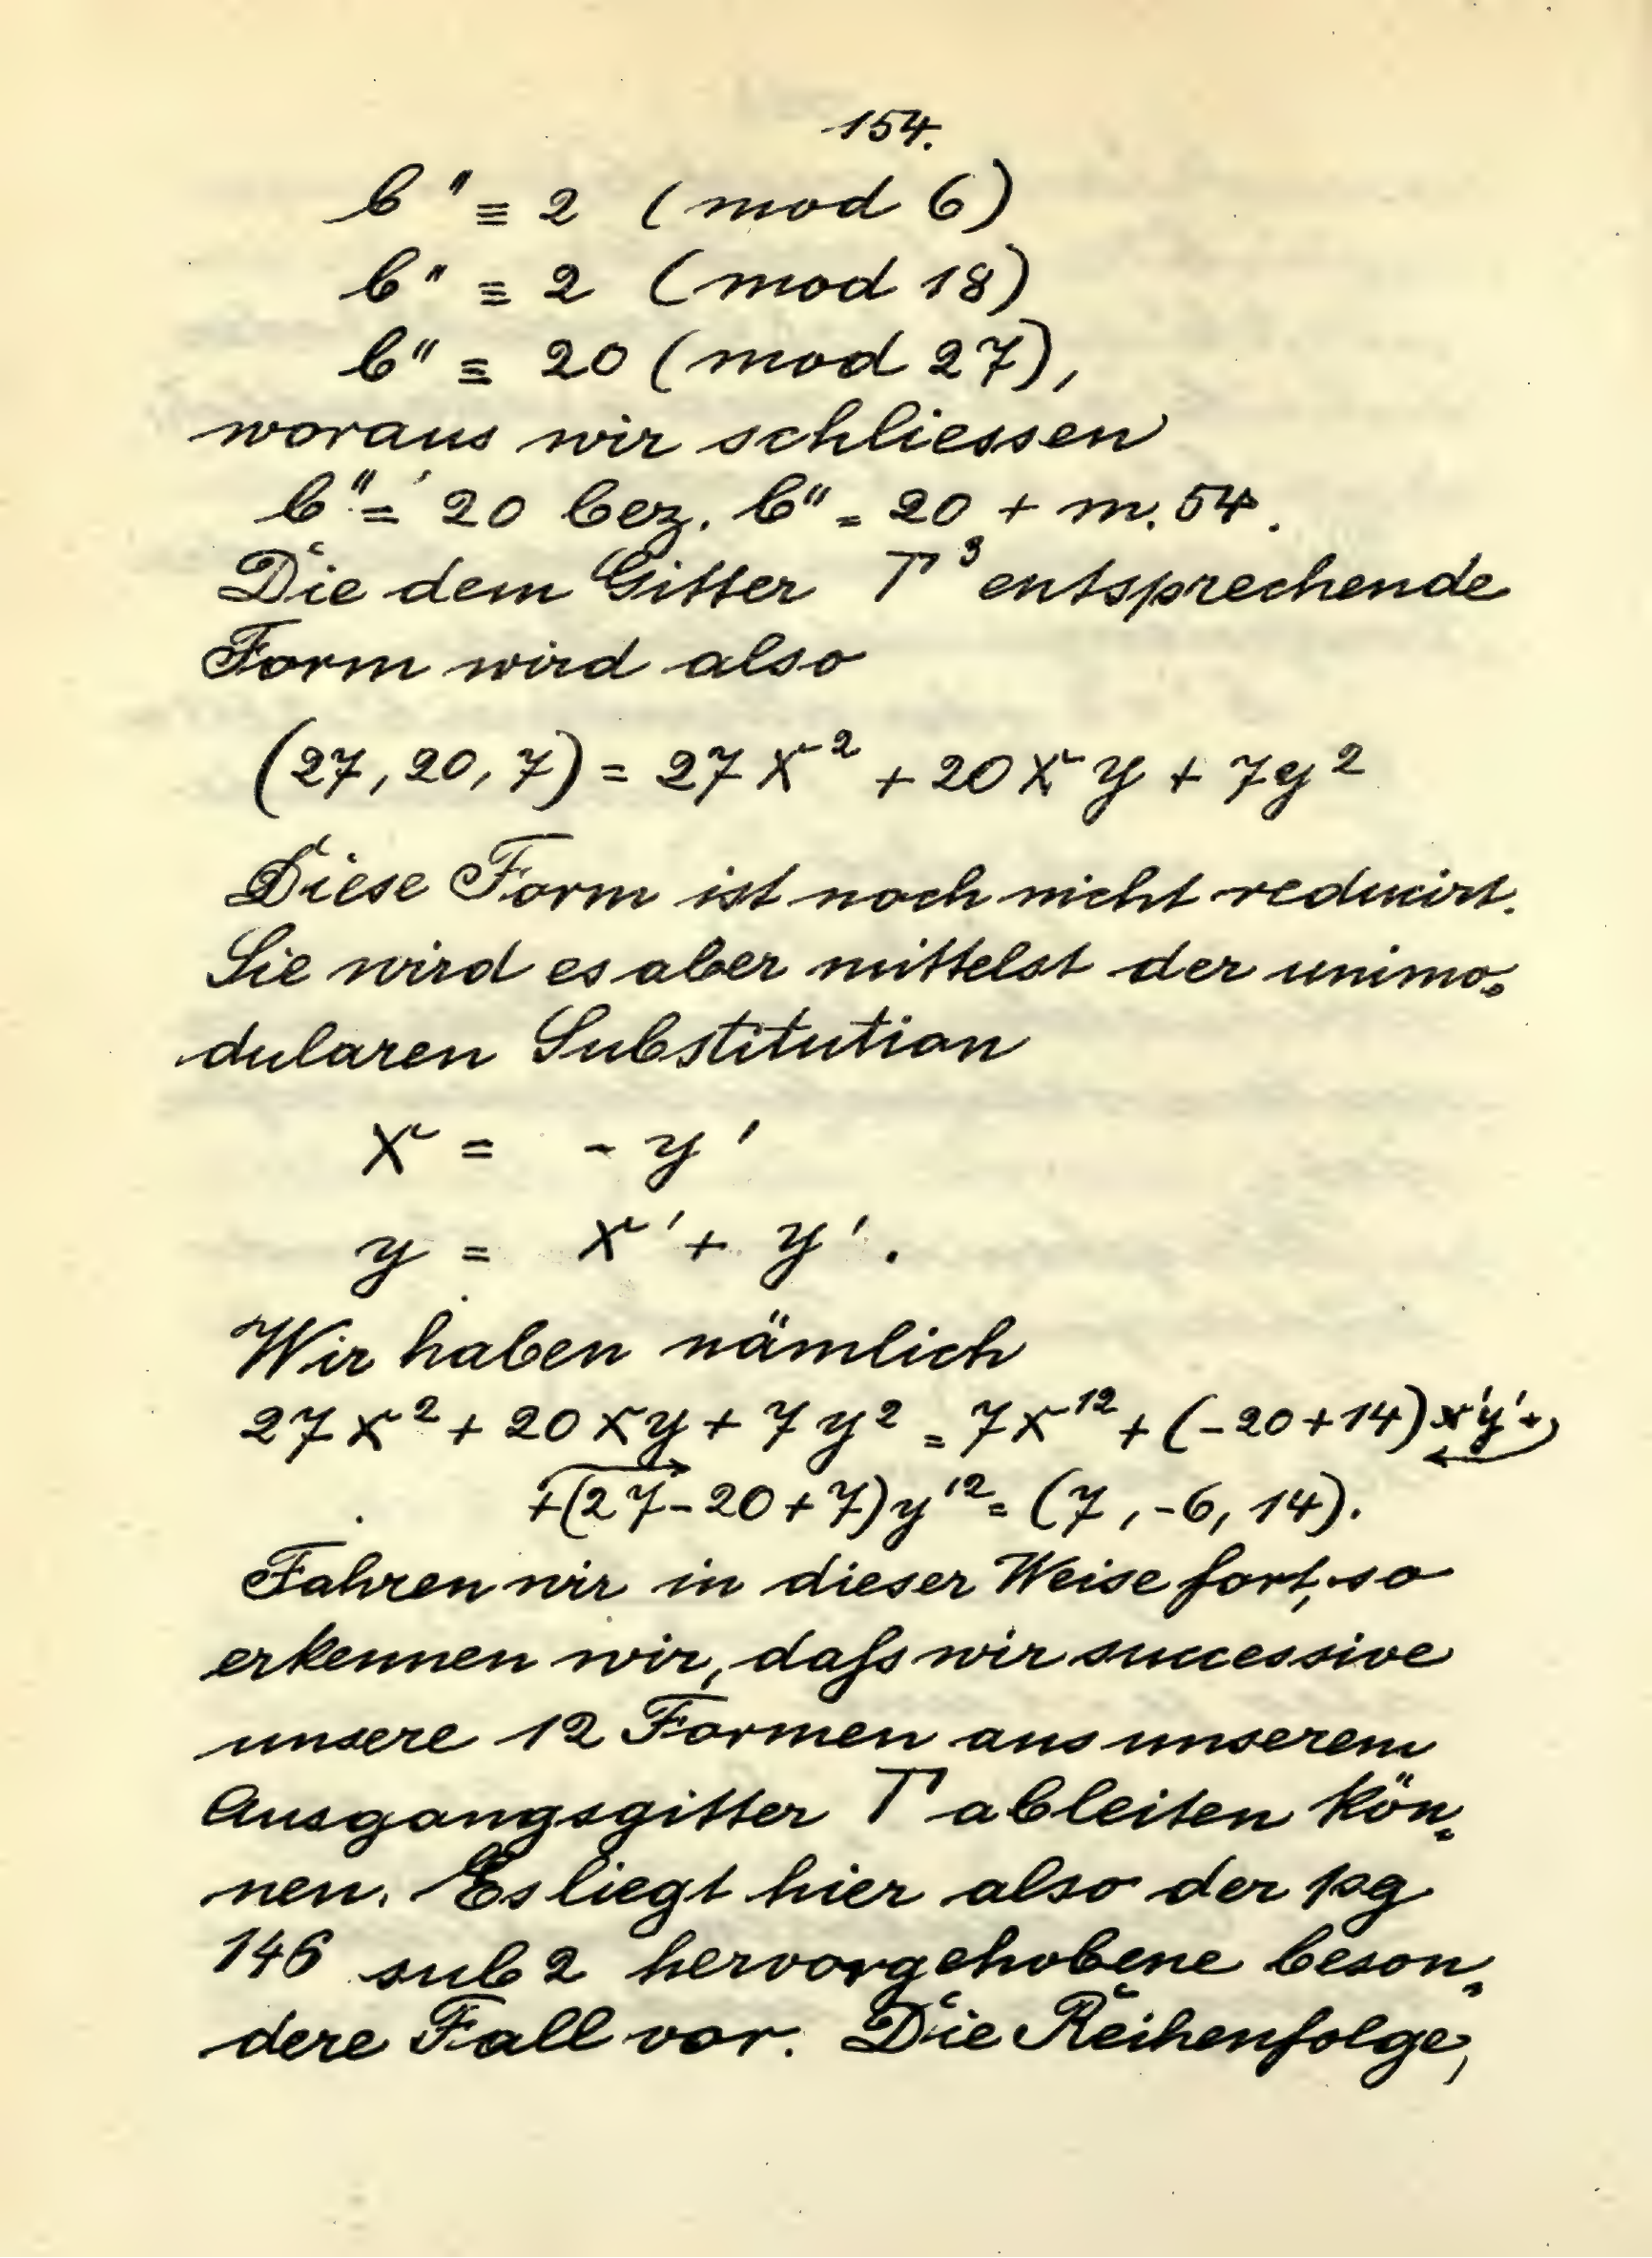 154.
b'' ≡ 2 (mod 6)
b'' ≡ 2 (mod 18)
b'' ≡ 20 (mod 27),
woraus wir schliessen
b'' = 20 bez. b'' = 20 + m. 54.
Die dem Gitter T³ entsprechende
Form wird also
(27, 20, 7) = 27x² + 20xy + 7y²
Diese Form ist noch nicht reducirt.
Sie wird es aber mittelst der unimo=
dularen Substitution
x = - y'
y = x' + y'.
Wir haben nämlich
27x² + 20xy + 7y² = 7x'² + (-20+14)x'y' +
+(27-20+7)y'² = (7, -6, 14).
Fahren wir in dieser Weise fort, so
erkennen wir, daſs wir successive
unsere 12 Formen aus unserem
Ausgangsgitter T ableiten kön=
nen. Es liegt hier also der pg
146 sub 2 hervorgehobene beson=
dere Fall vor. Die Reihenfolge,